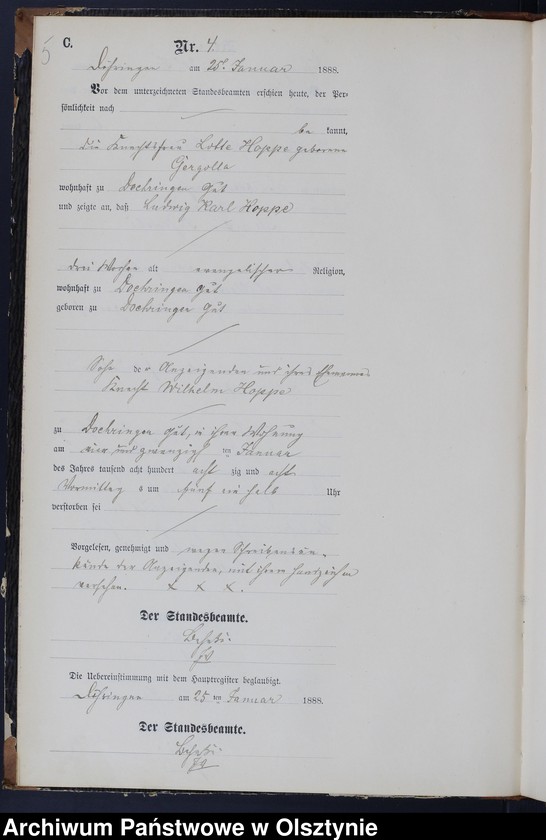 5
C.
Nr. 4.
Döhringen am 25t Januar 1888.
Vor dem unterzeichneten Standesbeamten erschien heute, der Per-
sönlichkeit nach
be kannt,
die Knechtsfrau Lotte Hoppe geborene
Gorgolla
wohnhaft zu Doehringen Gut
und zeigte an, daß Ludwig Karl Hoppe
drei Wochen alt evangelischer Religion,
wohnhaft zu Doehringen Gut
geboren zu Doehringen Gut
Sohn der Anzeigenden und ihres Ehemannes
Knecht Wilhelm Hoppe
zu Doehringen Gut, in ihrer Wohnung
am vier und zwanzigsten Januar
des Jahres tausend acht hundert acht zig und acht
Vormittag s um fünf ein halb Uhr
verstorben sei
Vorgelesen, genehmigt und wegen Schreibensun-
kunde der Anzeigenden, mit ihrem Handzeichen
versehen. X X X.
Der Standesbeamte.
Die Uebereinstimmung mit dem Hauptregister beglaubigt.
Döhringen am 25ten Januar 1888.
Der Standesbeamte.
Archiwum Państwowe w Olsztynie